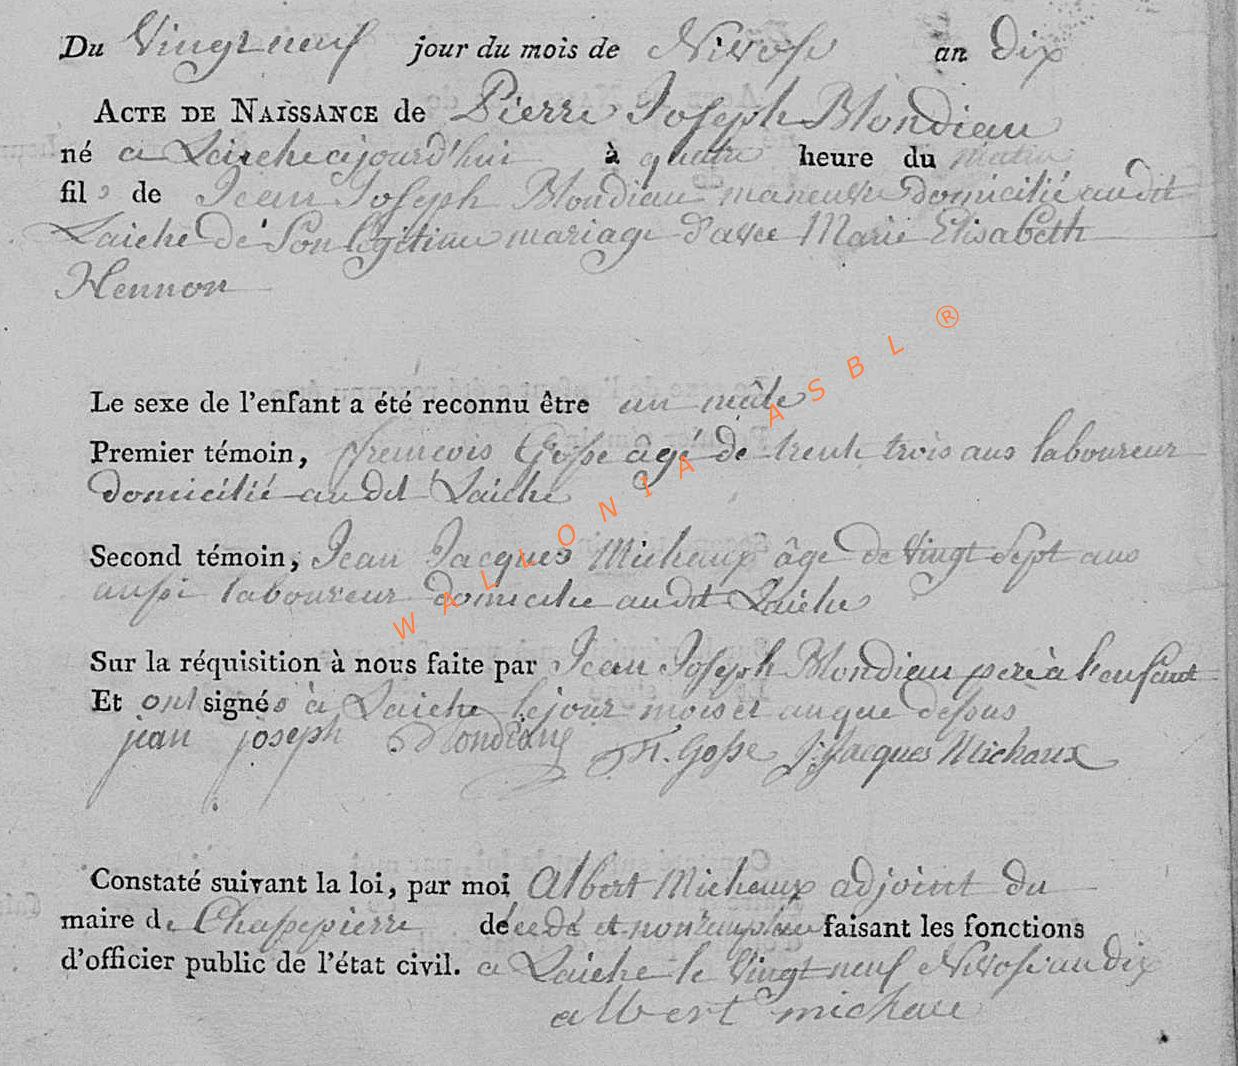 Du Vingt neuf jour du mois de Nivose an dix
ACTE DE NAISSANCE de Pierre Joseph Blondiau
né a Laiche ajourd'hui à quatre heure du matin
fils de Jean Joseph Blondiau maneuvre domicilié audit
Laiche de son legitime mariage d'avec Marie Elisabeth
Hennon
Le sexe de l'enfant a été reconnu être un mâle
Premier témoin, francois Gosse âgé de trente trois ans laboureur
domicilié audit Laiche
Second témoin, Jean Jacques Michaux âge de Vingt Sept ans
aussi laboureur domicilie audit Laiche
Sur la réquisition à nous faite par Jean Joseph Blondiau pere à l'enfant
Et ont signés à Laiche le jour mois et an que dessus
jean joseph Blondiau F. Gosse J: Jacques Michaux
Constaté suivant la loi, par moi Albert Michaux adjoint du
maire de Chassepierre décedé et non remplacé faisant les fonctions
d'officier public de l'état civil. a Laiche le Vingt neuf Nivose an dix
albert michaux
WALLONIA ASBL ®